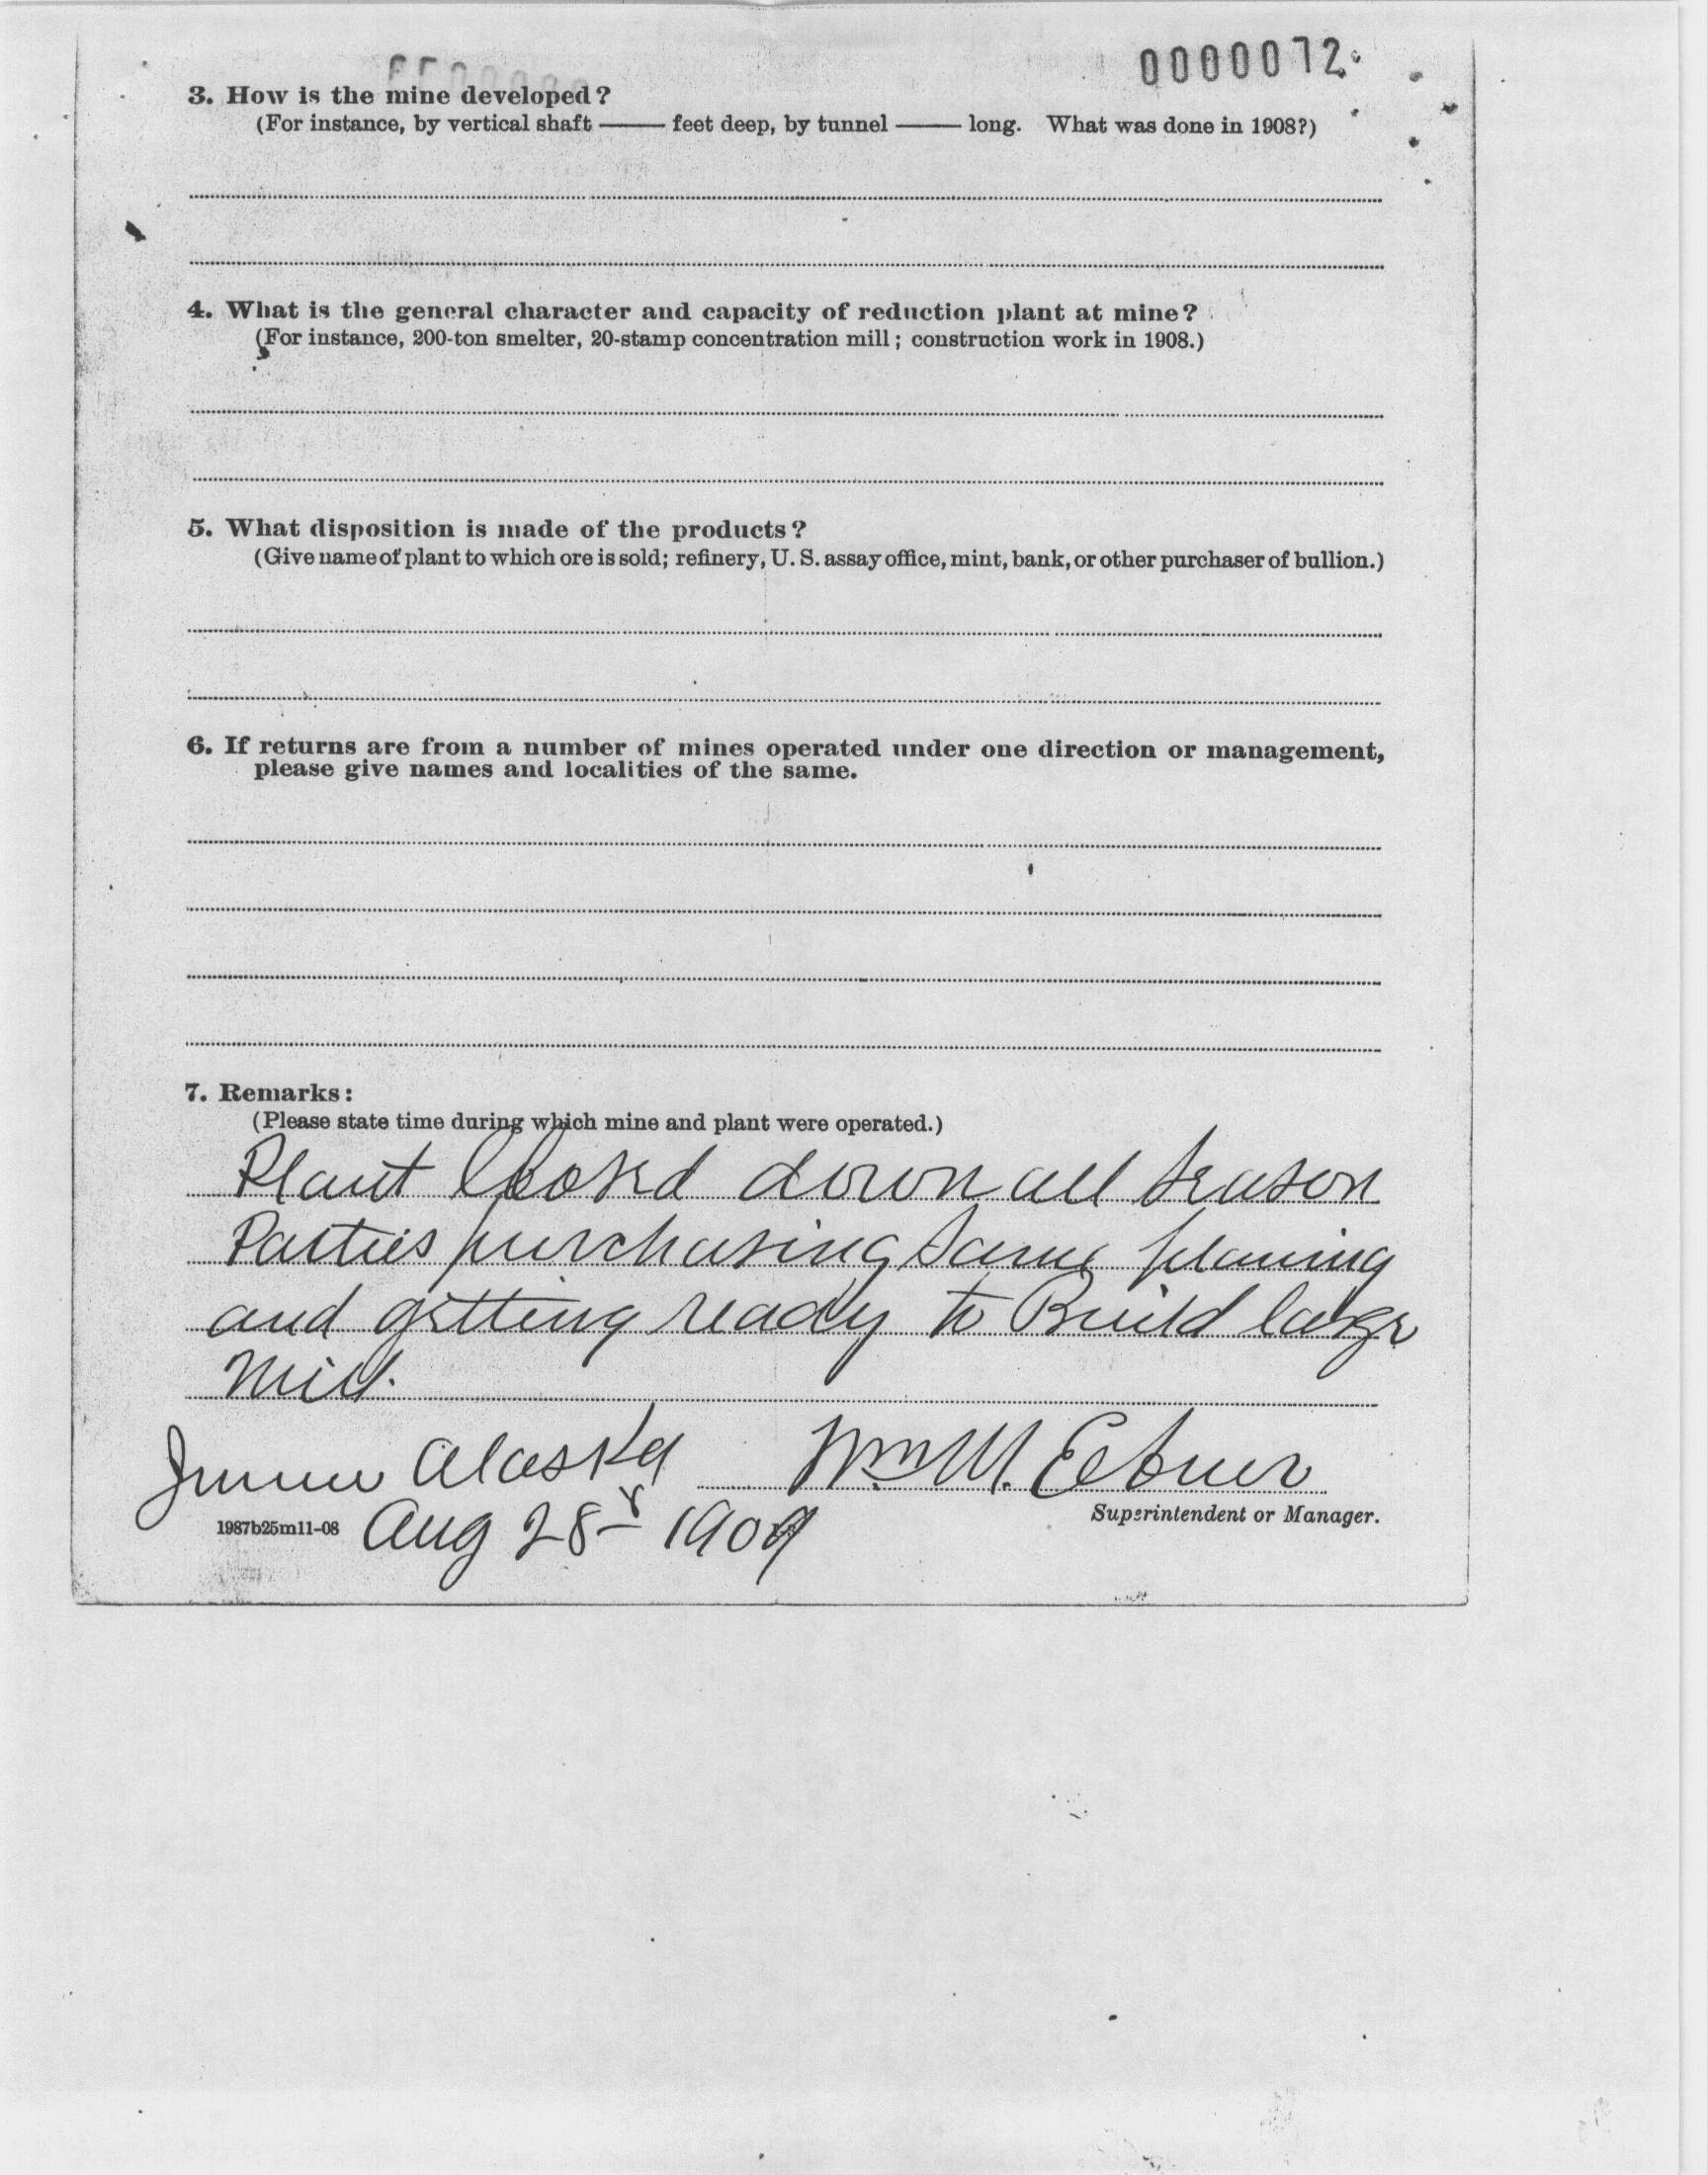 0000072
3. How is the mine developed?
(For instance, by vertical shaft —— feet deep, by tunnel —— long. What was done in 1908?)
4. What is the general character and capacity of reduction plant at mine?
(For instance, 200-ton smelter, 20-stamp concentration mill; construction work in 1908.)
5. What disposition is made of the products?
(Give name of plant to which ore is sold; refinery, U. S. assay office, mint, bank, or other purchaser of bullion.)
6. If returns are from a number of mines operated under one direction or management,
please give names and localities of the same.
7. Remarks:
(Please state time during which mine and plant were operated.)
Plant closed down all season
Parties purchasing same planing
and getting ready to Build large
Mill.
Juneau Alaska Wm M. Ebner
Superintendent or Manager.
1987b25m11-08 Aug 28 1909